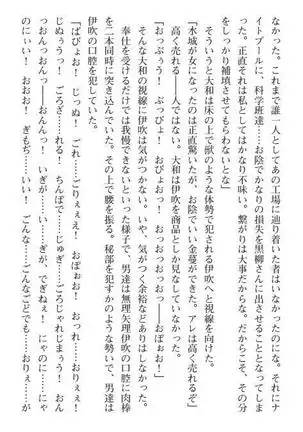 なかった。これまで誰一人としてあの工場に辿り着いた者はいなかったのにな。それにナ
イトプールに、科学班達……お陰でかなりの損失を黒柳さんに出させることとなってしま
った。正直それは私としてはかなり不味い。繋がりは大事だからな。だからこそ、その分
をしっかり補填させてもらわないとな」
　そういうと大和は床の上で獣のような体勢で犯される伊吹へと視線を向けた。
「水城が女になったのは正直驚いたが、お陰でいい金蔓ができた。アレは高く売れるぞ」
　高く売れる——人ではない。大和は伊吹を商品としか見なしていなかった。
「おっぶぅう！　ぶっぴょ！　おびょお！　おっおっおっおっ——おぽぉお！」
　そんな大和の視線に伊吹は気がつかない。いや、気がつく余裕などありはしなかった。
　奉仕を受けるだけでは我慢できないといった様子で、男達は無理矢理伊吹の口腔に肉棒
を二本同時に突き込んでいた。その上で腰を振る。秘部を犯すかのような勢いで、男達は
伊吹の口腔を犯していた。
「ばびょお！　じっぬ！　ごれ……ごりぇぇえ！　おぼぉお！　おっれ……おりぇえ！
じぬぅう！　ごろざれるぅ！　ちんぽで……じゅぎ……ごろじゃれじまうぅ！　おん
っおんっおんっ——おんんっ！　いぎ……いぎが、でぎねぇ！　にゃのに……にゃ
のにぃい！　おぐ！　ぎもぢ……いい！　ごんな……ごんなごどでも……おりぇ……が